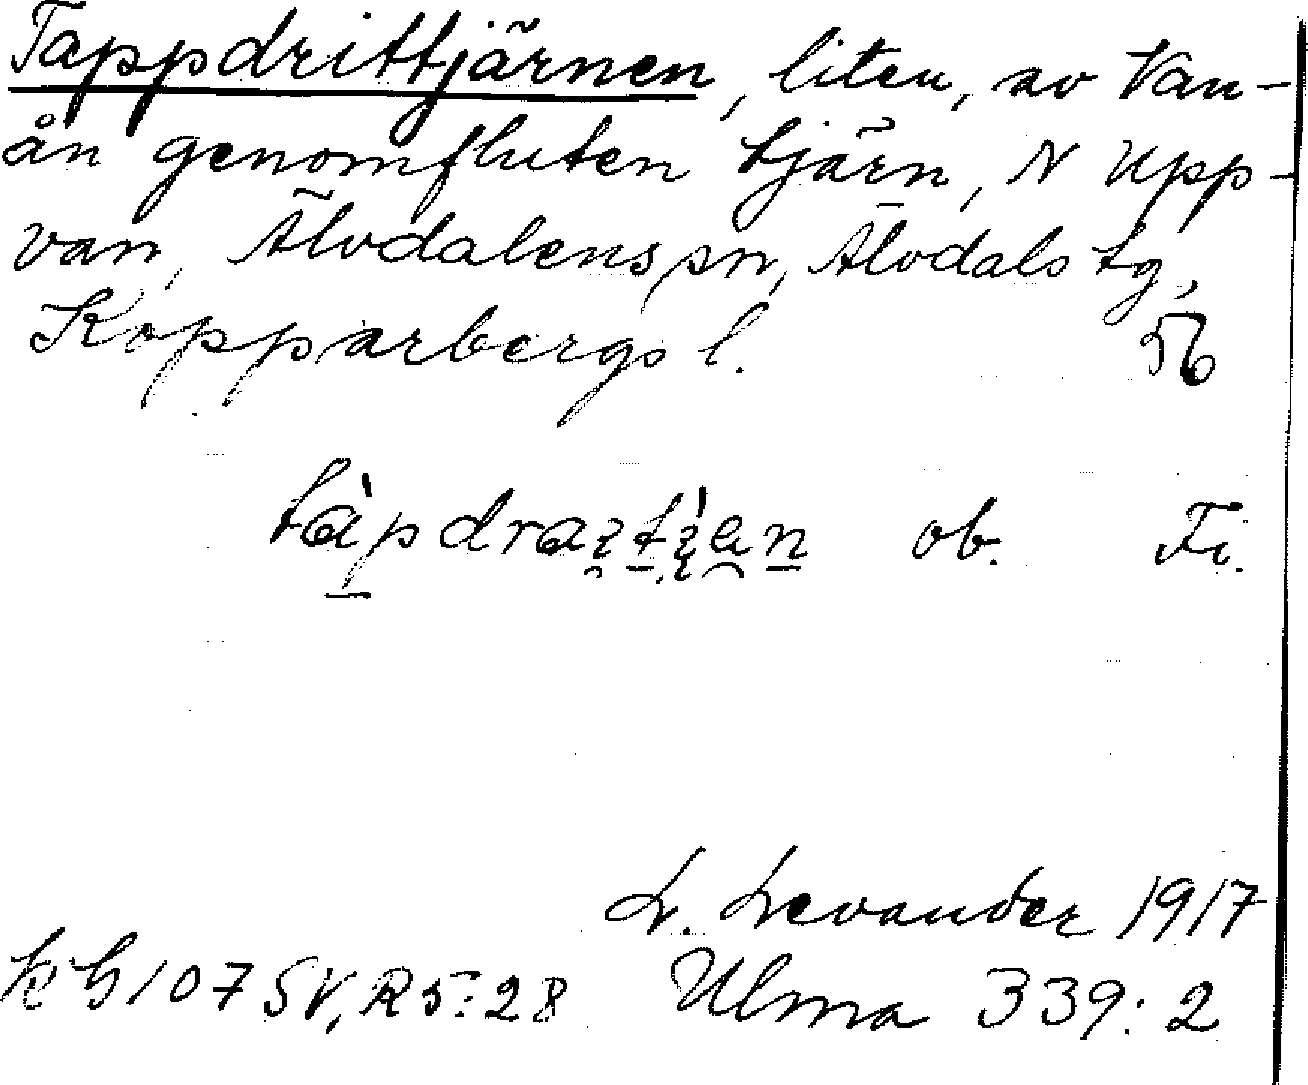 Tappdrittjärnen, liten, av Van-
ån genomfluten tjärn, N Upp-
van, Älvdalens sn, Älvdals tg,
Kopparbergs l. 56
ob. Fi.
L. Levander 1917
kb 107 SV, R5:28 Ulma 339:2